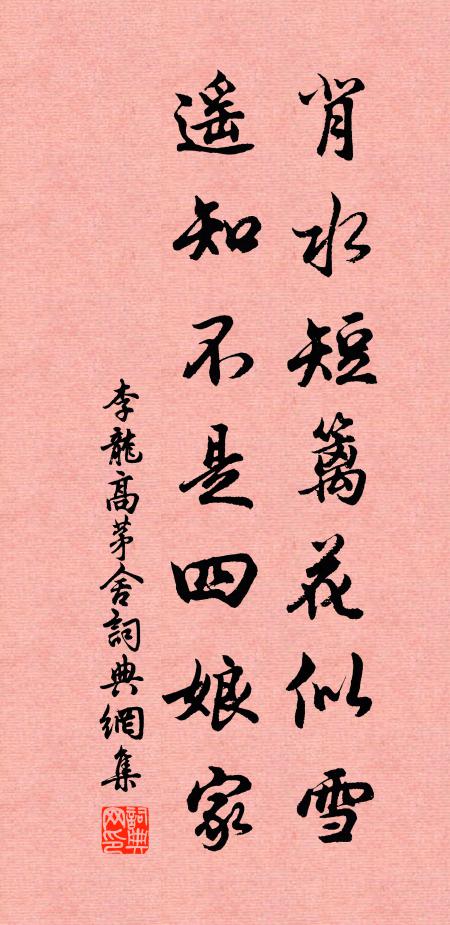 背水短篱花似雪
遥知不是四娘家
李龍高茅舍詞典網集
詞典
网印